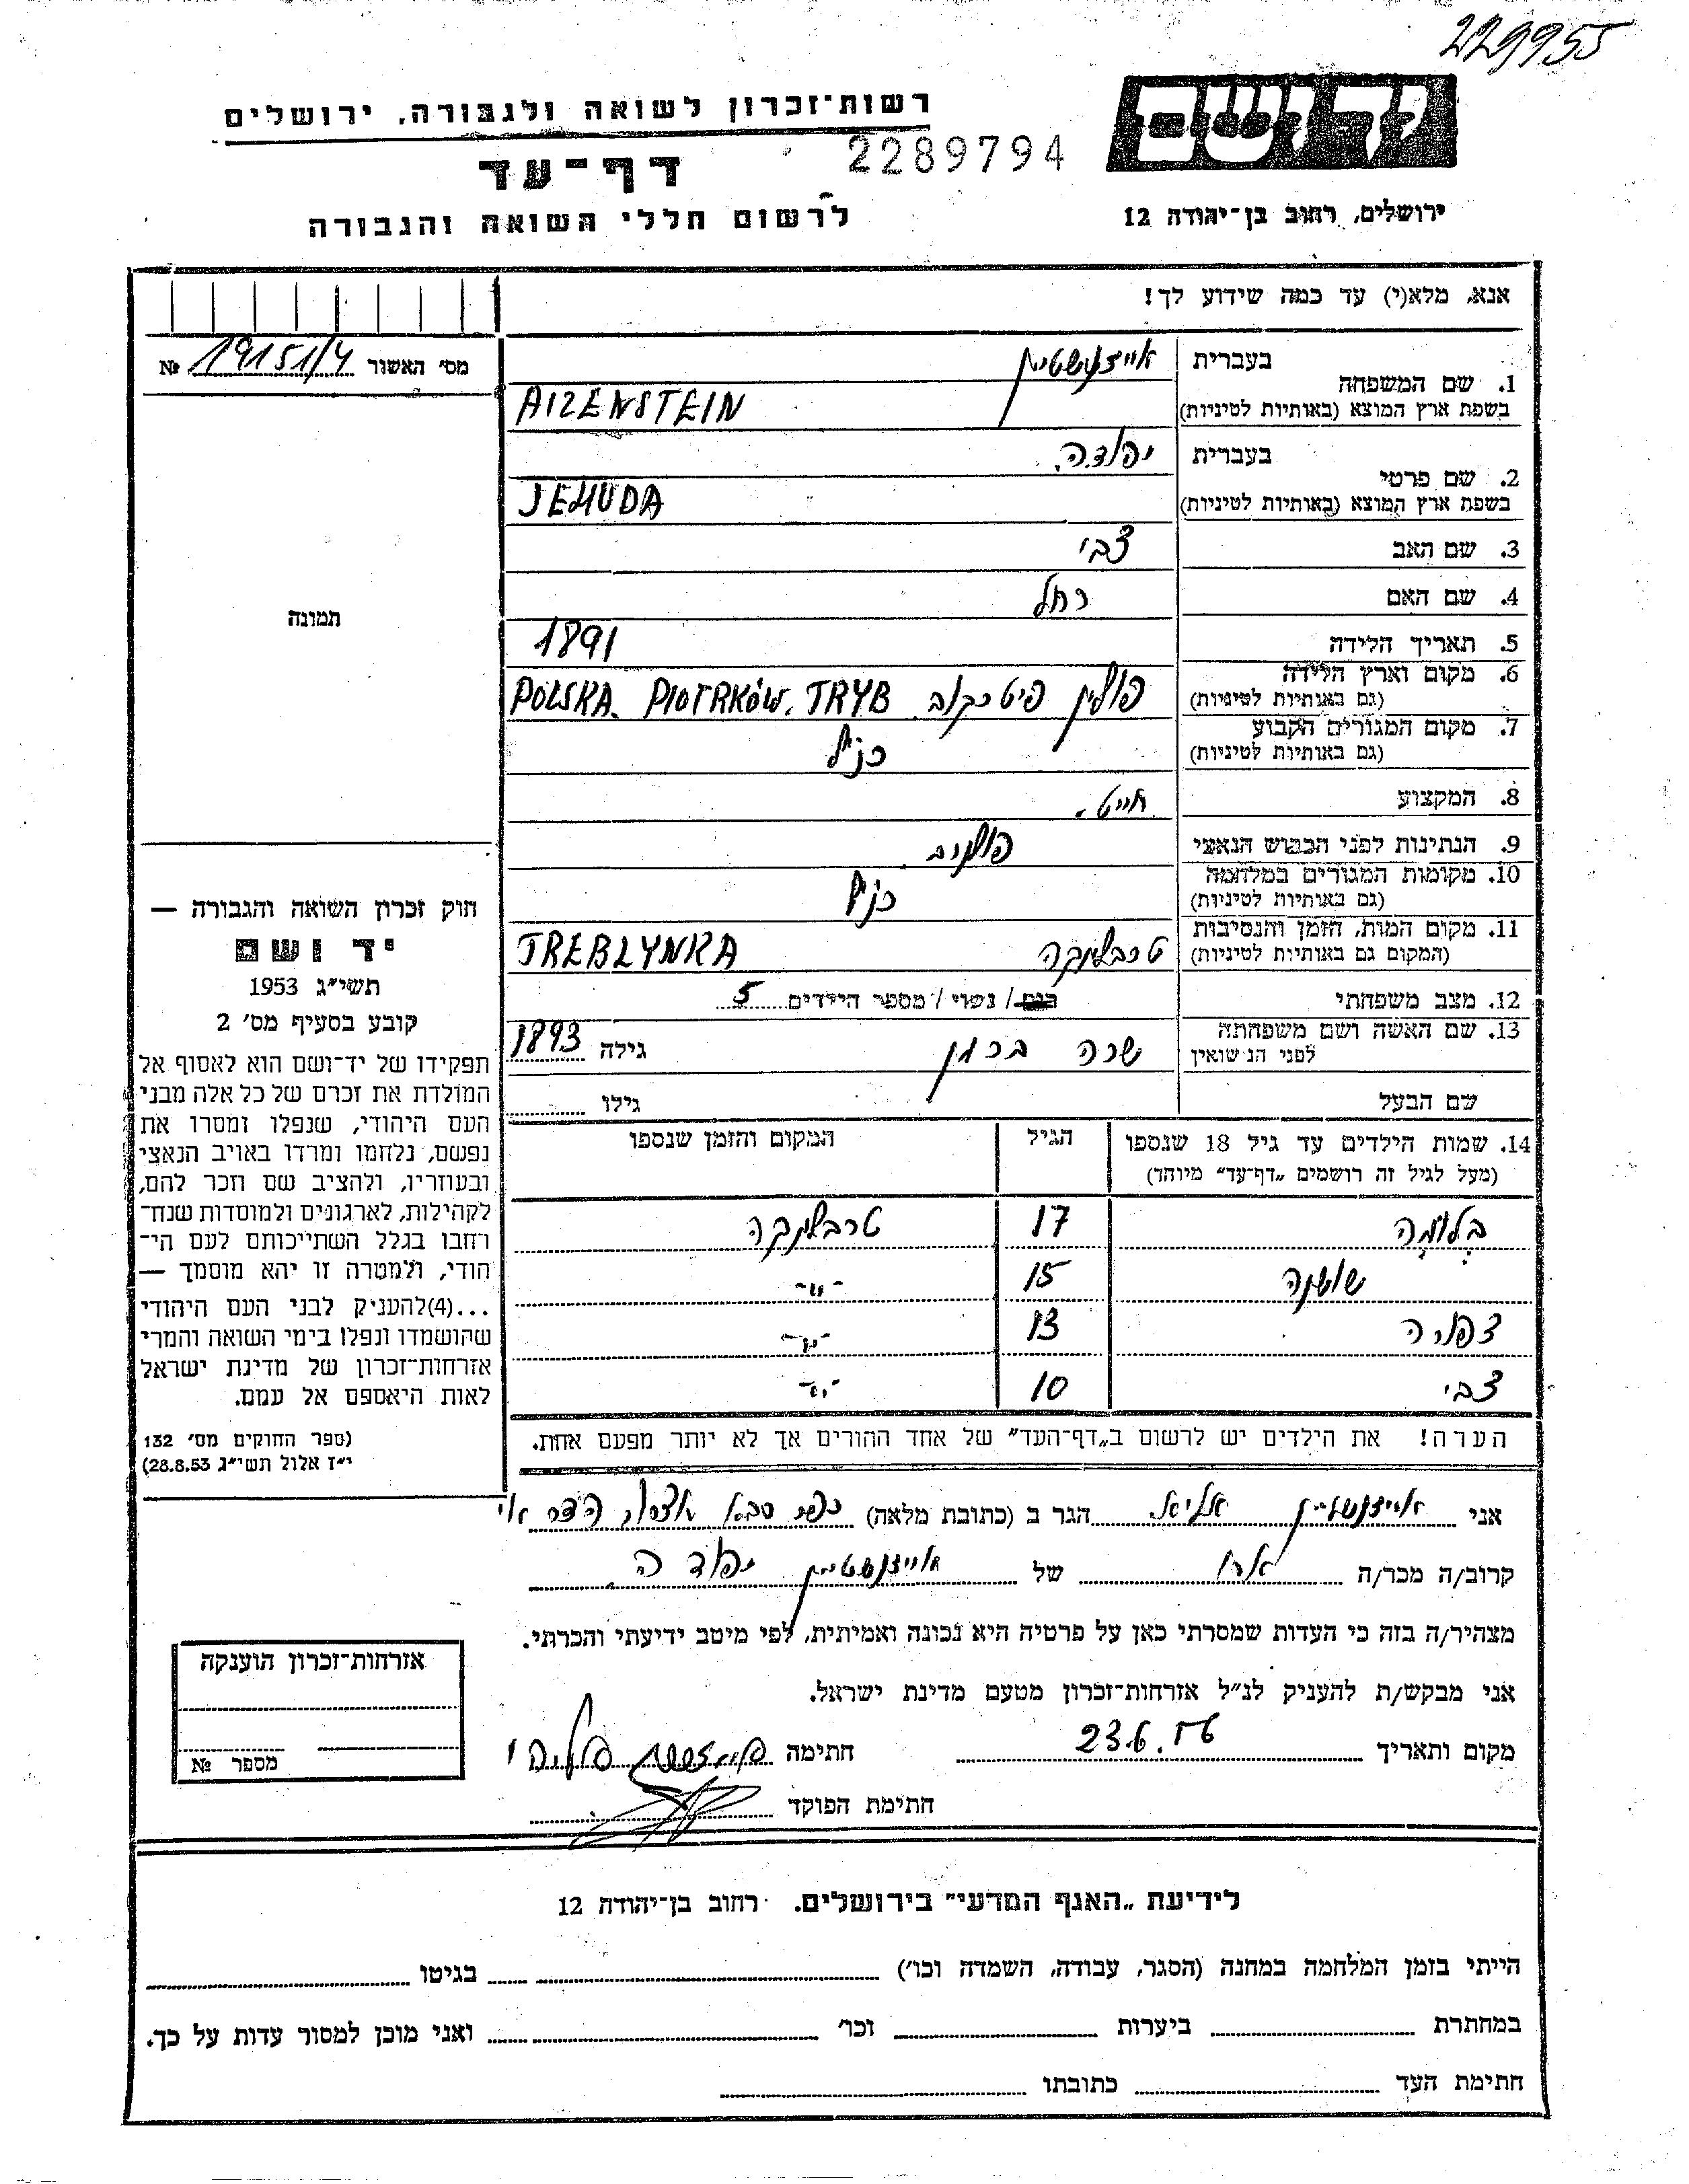 229955
רשות־זכרון לשואה ולגבורה, ירושלים
יד ושם
2289794
דף־עד
ירושלים, רחוב בן־יהודה 12
לרשום חללי השואה והגבורה
אנא, מלא(י) עד כמה שידוע לך!
מס' האשור 19151/4 №
בעברית
אייזנשטיין
1. שם המשפחה
בשפת ארץ המוצא (באותיות לטיניות)
AIZENSTEIN
בעברית
יהודה
2. שם פרטי
בשפת ארץ המוצא (באותיות לטיניות)
JEHUDA
3. שם האב
צבי
4. שם האם
רחל
תמונה
5. תאריך הלידה
1891
6. מקום וארץ הלידה
(גם באותיות לטיניות)
פולין פיטרקוב. POLSKA. PIOTRKÓW. TRYB
7. מקום המגורים הקבוע
(גם באותיות לטיניות)
כנ"ל
8. המקצוע
חייט.
9. הנתינות לפני הכבוש הנאצי
10. מקומות המגורים במלחמה
(גם באותיות לטיניות)
כנ"ל
11. מקום המות, הזמן והנסיבות
(המקום גם באותיות לטיניות)
טרבלינקה TREBLYNKA
12. מצב משפחתי
/ נשוי / מספר הילדים 5
13. שם האשה ושם משפחתה
לפני הנשואין
שרה ברגמן גילה 1893
שם הבעל
גילו
14. שמות הילדים עד גיל 18 שנספו
(מעל לגיל זה רושמים „דף־עד” מיוחד)
הגיל
המקום והזמן שנספו
בלומה 17 טרבלינקה
שושנה 15 -"-
צפורה 13 -"-
צבי 10 -"-
הערה! את הילדים יש לרשום ב„דף־העד” של אחד ההורים אך לא יותר מפעם אחת.
חוק זכרון השואה והגבורה —
יד ושם
תשי״ג 1953
קובע בסעיף מס' 2
תפקידו של יד־ושם הוא לאסוף אל
המולדת את זכרם של כל אלה מבני
העם היהודי, שנפלו ומסרו את
נפשם, נלחמו ומרדו באויב הנאצי
ובעוזריו, ולהציב שם וזכר להם,
לקהילות, לארגונים ולמוסדות שנח־
רבו בגלל השתייכותם לעם הי־
הודי, ולמטרה זו יהא מוסמך —
...(4)להעניק לבני העם היהודי
שהושמדו ונפלו בימי השואה והמרי
אזרחות־זכרון של מדינת ישראל
לאות היאספם אל עמם.
(ספר החוקים מס' 132
י״ז אלול תשי״ג 28.8.53)
אני אייזנשטיין הגר ב (כתובת מלאה) כפר סבא
קרוב/ה מכר/ה אח של אייזנשטיין יהודה
מצהיר/ה בזה כי העדות שמסרתי כאן על פרטיה היא נכונה ואמיתית, לפי מיטב ידיעתי והכרתי.
אני מבקש/ת להעניק לנ״ל אזרחות־זכרון מטעם מדינת ישראל.
מקום ותאריך 23.6.56 חתימה
חתימת הפוקד
אזרחות־זכרון הוענקה
מספר №
לידיעת „האגף המדעי” בירושלים. רחוב בן־יהודה 12
הייתי בזמן המלחמה במחנה (הסגר, עבודה, השמדה וכו') בגיטו
במחתרת ביערות וכו' ואני מוכן למסור עדות על כך.
חתימת העד כתובתו